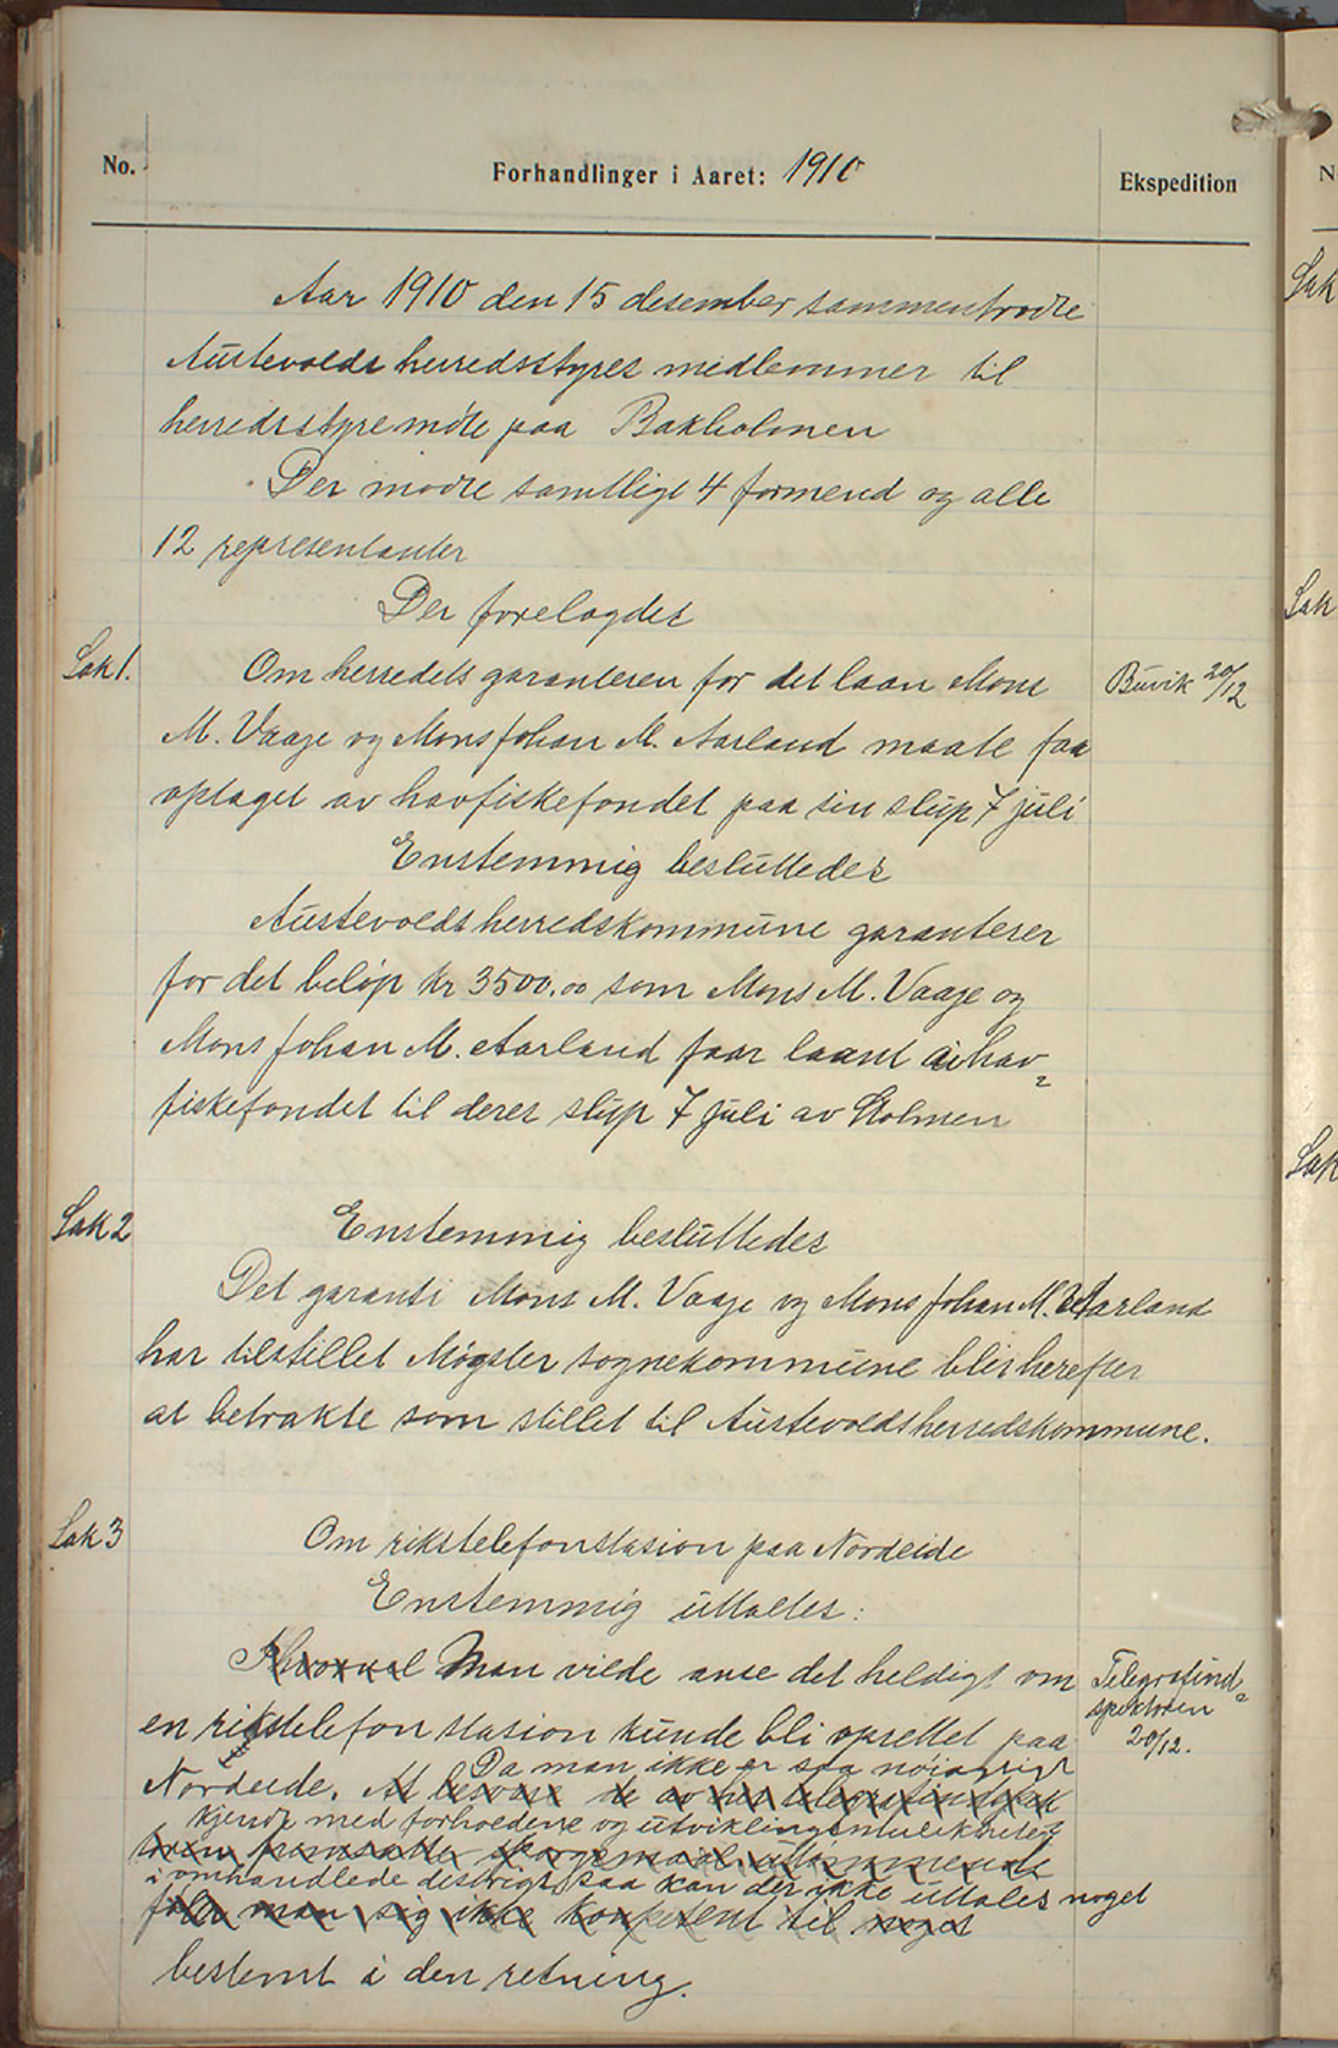 No. Forhandlinger i Aaret: 1910 Ekspedition
Aar 1910 den 15 desember sammentrodte
Austevolds herredsstyres medlemmer til
herredsstyremöte paa Bakholmen
Der mödte samtlige 4 formænd og alle
12 representanter
Der forelagdes
Sak 1. Om herredets garanteren for det laan Mons Buvik 20/12
M. Vaage og Mons Johan M. Aarland maate faa
optaget av havfiskefondet paa sin slup 7 juli
Enstemmig besluttedes
Austevolds herredskommune garanterer
for det belöp kr 3500.00 som Mons M. Vaage og
Mons Johan M. Aarland faar laant av hav=
fiskefondet til deres slup 7 juli av Stolmen
Sak 2 Enstemmig besluttedes
Det garanti Mons M. Vaage og Mons Johan M. Aarland
har tilstillet Møgster sognekommune blir herefter
at betrakte som stillet til Austevolds herredskommune.
Sak 3 Om rikstelefonstasion paa Nordeide
Enstemmig uttaltes:
Man vilde anse det heldigt om Telegrafind=
en rikstelefonstasion kunde bli oprettet paa spektören
20/12.
Da man ikke er saa nöiagtigt
Nordeide. At besvare de av hr telegrafindspek
kjendt med forholdene og utviklingsmulikheter
tören fremsatte spørgsmaal uttömmende
i omhandlede destrigt, saa kan der ikke uttales noget
föler man sig ikke konpetent til noget
bestemt i den retning.
Sak
Sak
Sak